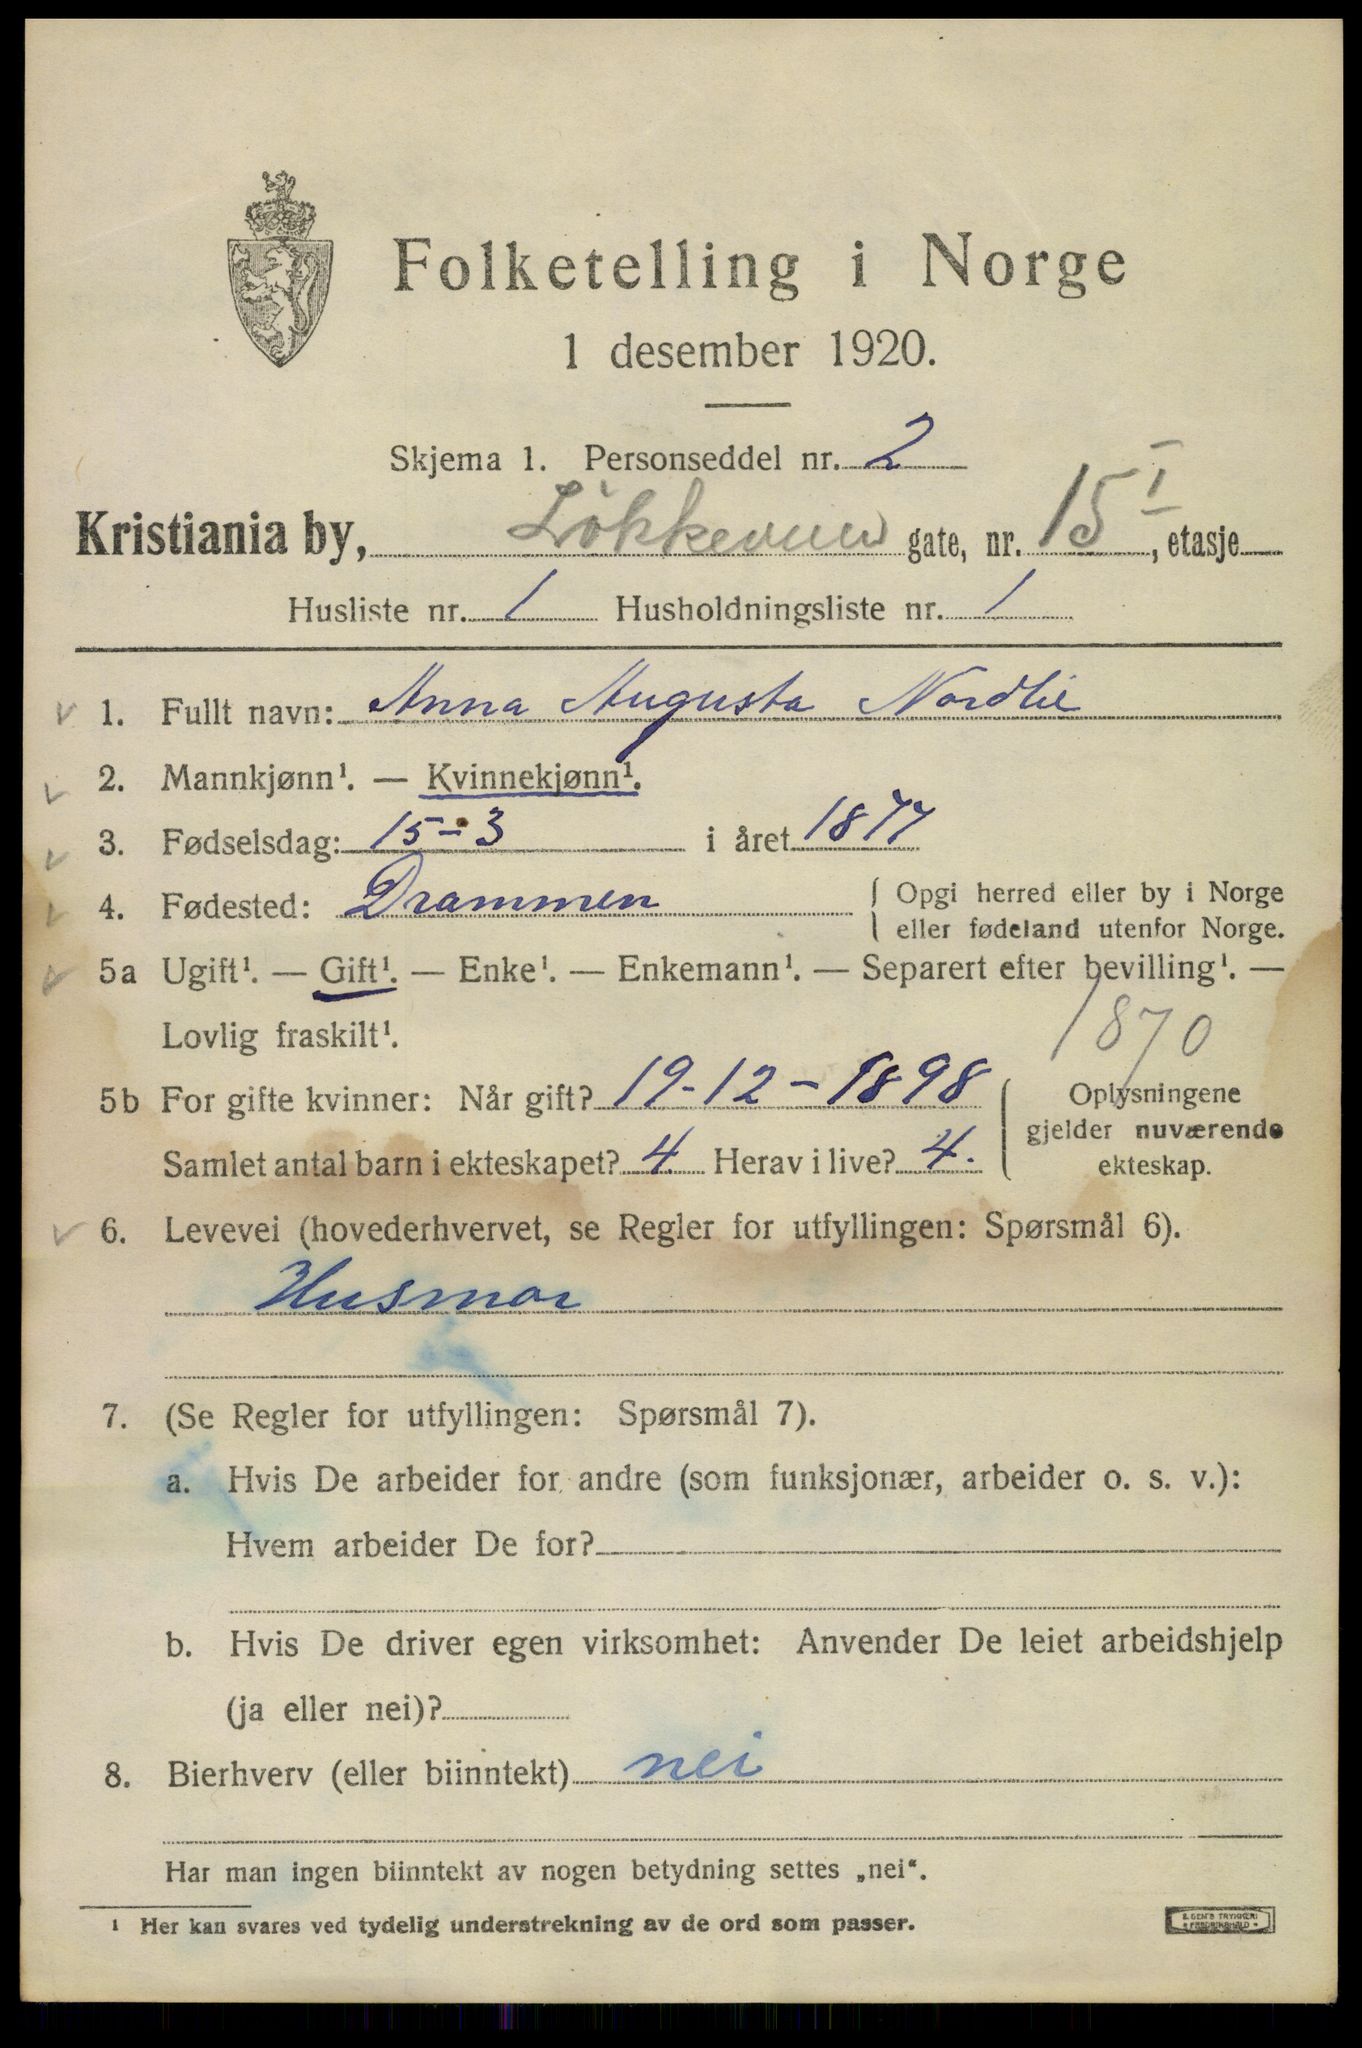 Folketelling i Norge
1 desember 1920.
Skjema 1. Personseddel nr. 2
Kristiania by, Løkkeveien gate, nr. 15 I, etasje
Husliste nr. 1 Husholdningsliste nr. 1
1. Fullt navn: Anna Augusta Nordlie
2. Mannkjønn¹. — Kvinnekjønn¹.
3. Fødselsdag: 15-3 i året 1877
4. Fødested: Drammen { Opgi herred eller by i Norge
eller fødeland utenfor Norge.
5a Ugift¹. — Gift¹. — Enke¹. — Enkemann¹. — Separert efter bevilling¹. —
Lovlig fraskilt¹.
1870
5b For gifte kvinner: Når gift? 19-12-1898 { Oplysningene
gjelder nuværende
Samlet antal barn i ekteskapet? 4. Herav i live? 4. ekteskap.
6. Levevei (hovederhvervet, se Regler for utfyllingen: Spørsmål 6).
Husmor
7. (Se Regler for utfyllingen: Spørsmål 7).
a. Hvis De arbeider for andre (som funksjonær, arbeider o. s. v.):
Hvem arbeider De for?
b. Hvis De driver egen virksomhet: Anvender De leiet arbeidshjelp
(ja eller nei)?
8. Bierhverv (eller biinntekt) nei
Har man ingen biinntekt av nogen betydning settes „nei“.
¹ Her kan svares ved tydelig understrekning av de ord som passer.